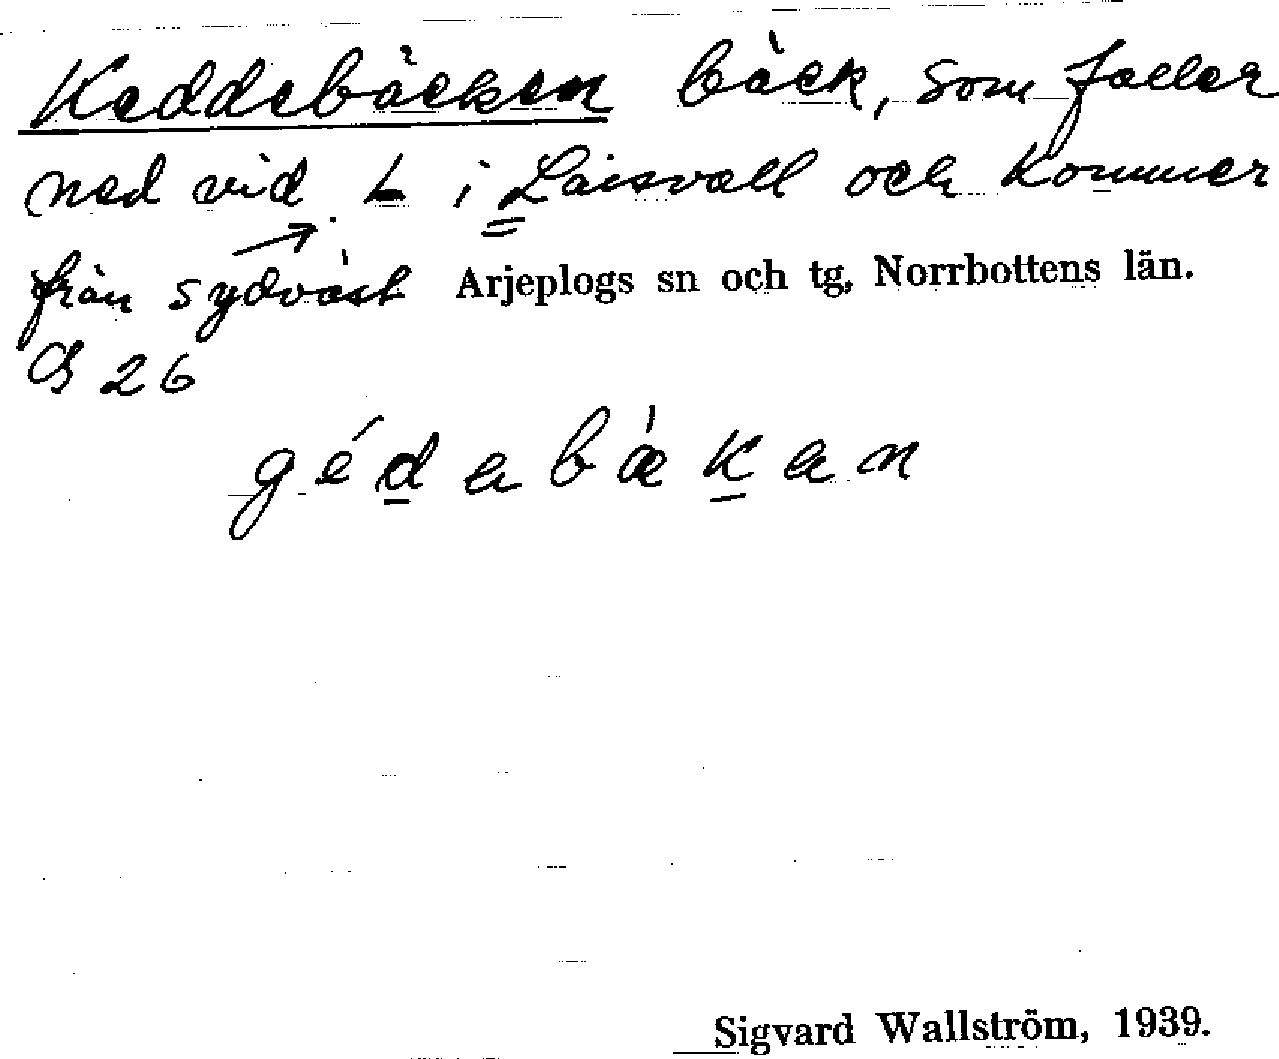 Keddebäcken bäck, som faller
ned vid L i Laisvall och kommer
från sydväst Arjeplogs sn och tg, Norrbottens län.
26
gédabäkan
Sigvard Wallström, 1939.